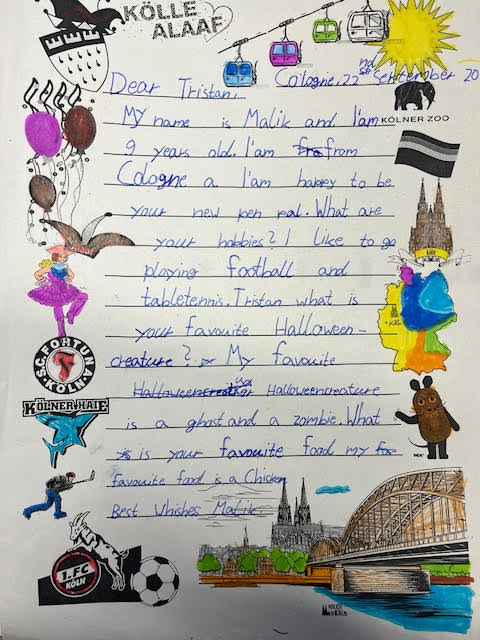 KÖLLE
ALAAF
Dear Tristan,
Cologne, 22nd September 20
My name is Malik and I'am
KÖLNER ZOO
9 years old. I'am from
Cologne a I'am happy to be
your new pen real. What are
your hobbies? I like to go
playing football and
tabletennis. Tristan what is
your favouite Halloween-
creature? My favouite
Halloweencreature
is a ghost and a zombie. What
is your favouite food my
favouite food is a Chicken
Best Whishes Malik
S.C. FORTUNA
KÖLN
KÖLNER HAIE
1. FC
KÖLN
Köln